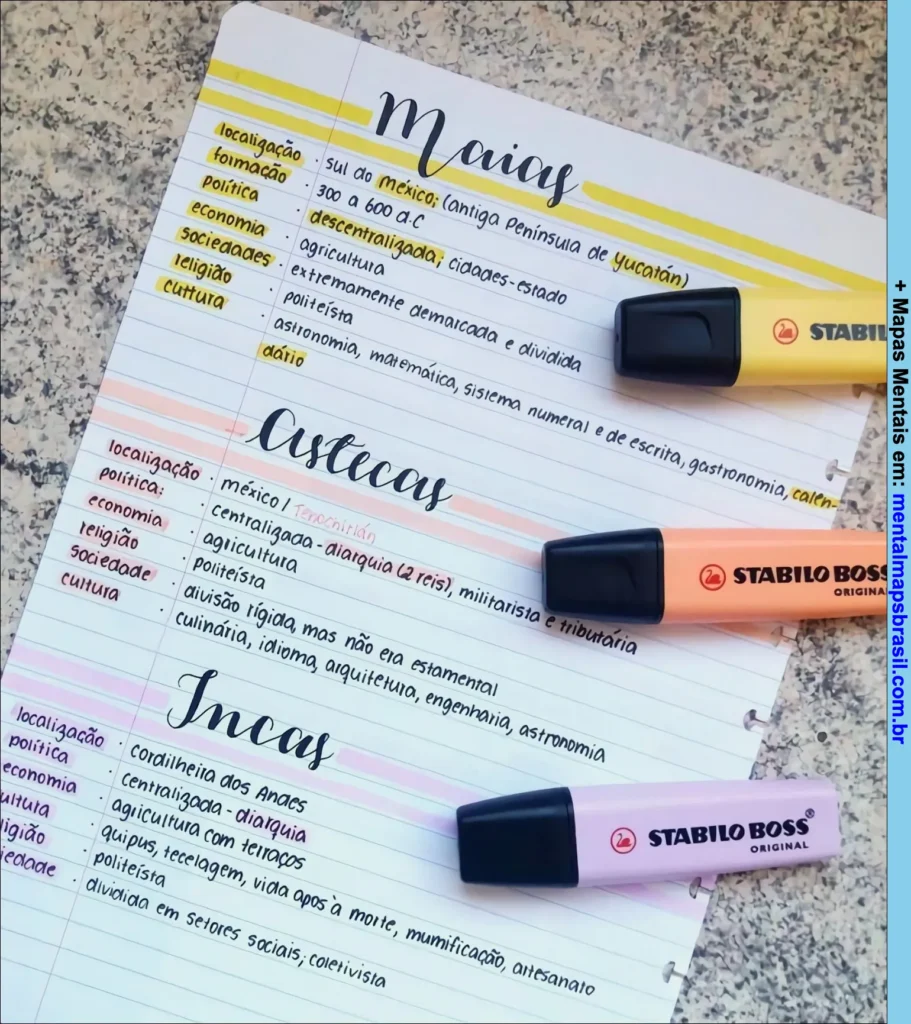 Maias
localização · sul do méxico; (antiga Península de Yucatán)
formação · 300 a 600 d.C
política · descentralizada; cidades-estado
economia · agricultura
sociedades · extremamente demarcada e dividida
religião · politeísta
cultura · astronomia, matemática, sistema numeral e de escrita, gastronomia, calen-
dário
STABIL
Astecas
localização · méxico / Tenochtitlán
política: · centralizada - diarquia (2 reis), militarista e tributária
economia · agricultura
religião · politeísta
sociedade · divisão rígida, mas não era estamental
cultura · culinária, idioma, arquitetura, engenharia, astronomia
STABILO BOSS
ORIGINA
Incas
localização · cordilheira dos Andes
política · centralizada - diarquia
economia · agricultura com terraços
ultura · quipus, tecelagem, vida após à morte, mumificação, artesanato
ligião · politeísta
iedade · dividida em setores sociais; coletivista
STABILO BOSS®
ORIGINAL
+ Mapas Mentais em: mentalmapsbrasil.com.br